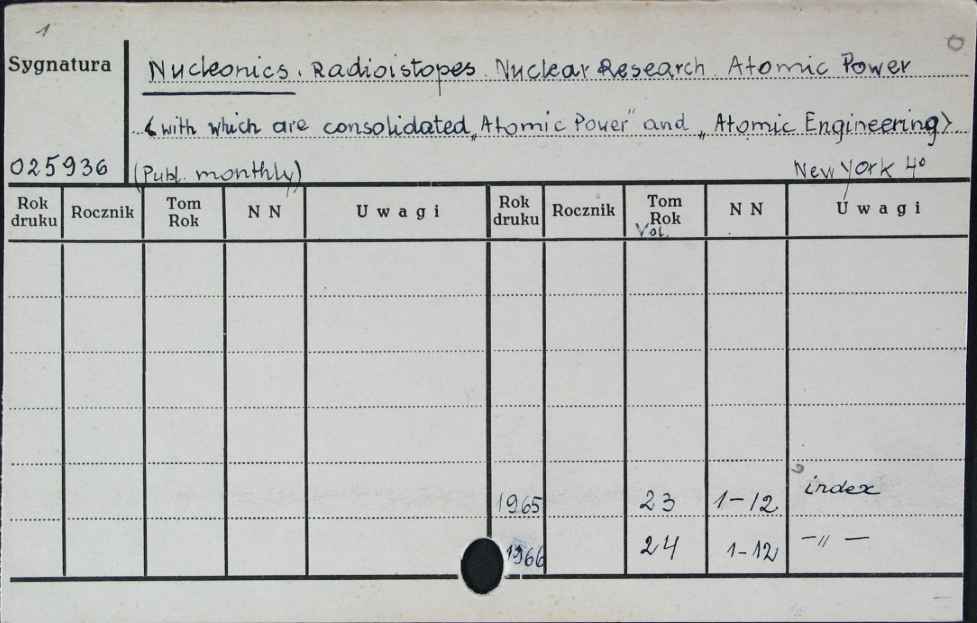 1
Sygnatura
Nucleonics. Radioistopes. Nuclear Research. Atomic Power
<with which are consolidated „Atomic Power" and „Atomic Engineering>
025936
(Publ. monthly)
New York 4°
Rok druku Rocznik Tom Rok NN Uwagi Rok druku Rocznik Tom Rok Vol. NN Uwagi
1965 23 1-12 index
1966 24 1-12 -"-